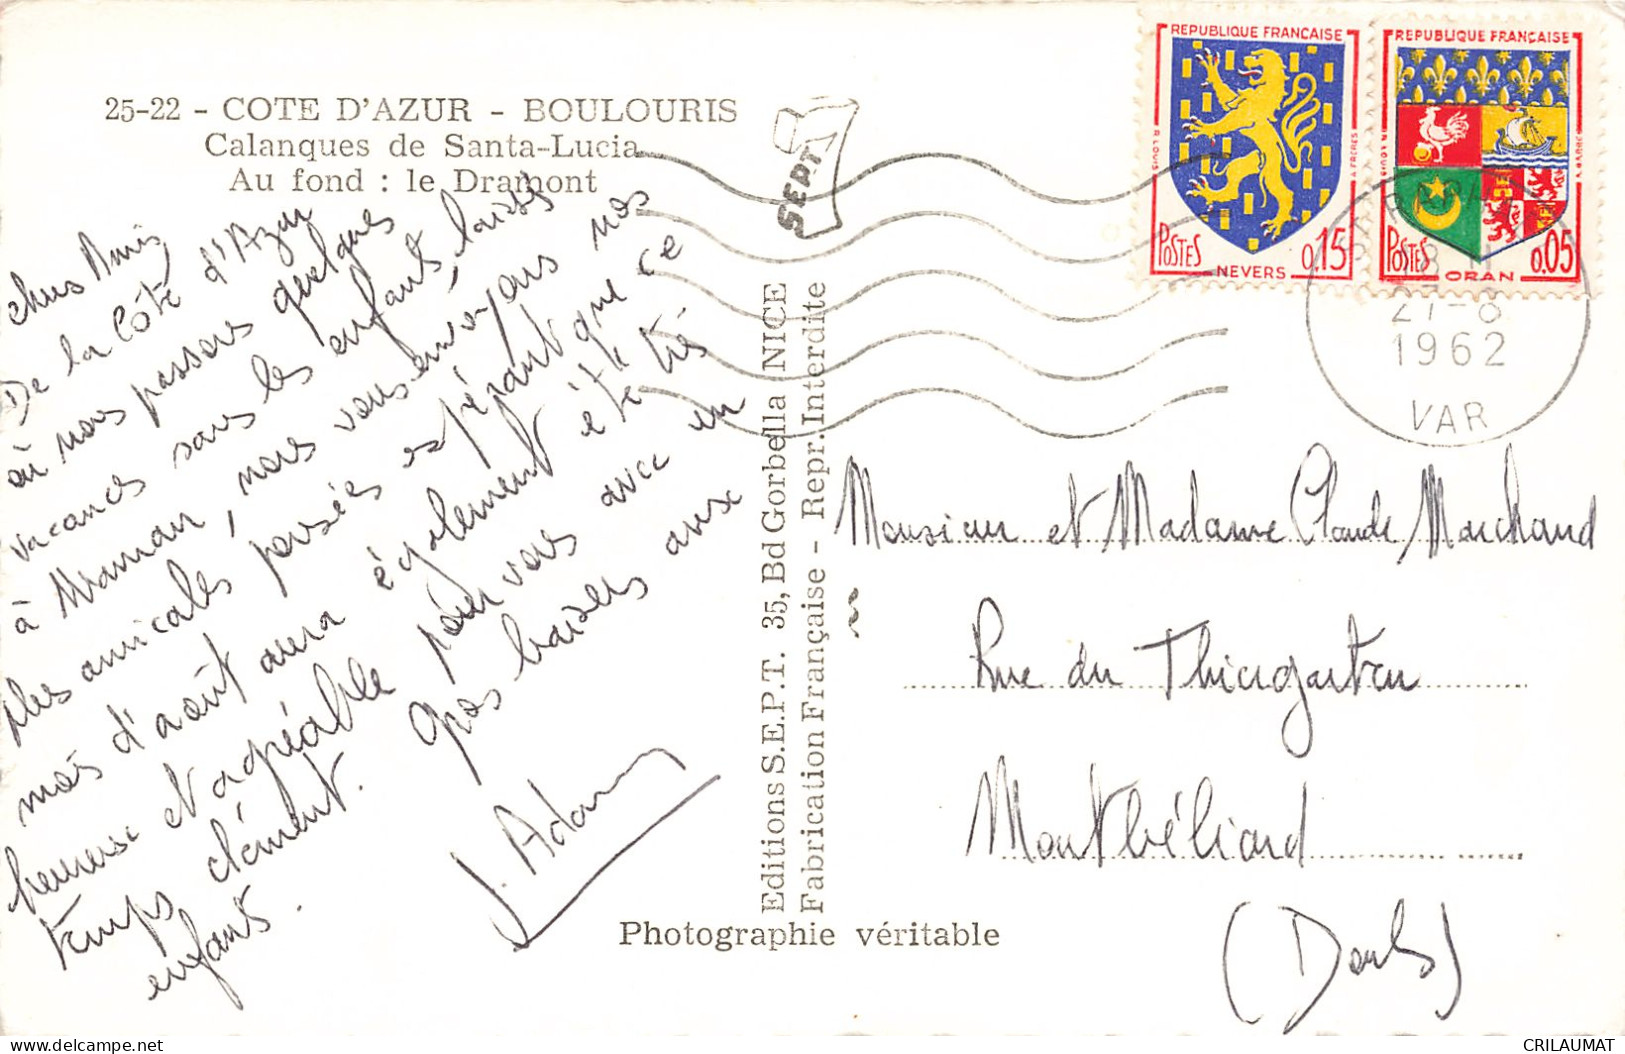 25-22 - COTE D'AZUR - BOULOURIS
Calanques de Santa-Lucia
Au fond : le Dramont
SEPT
REPUBLIQUE FRANÇAISE
POSTES
0,15
NEVERS
REPUBLIQUE FRANÇAISE
POSTES
0,05
ORAN
27-8
1962
VAR
chers Amis
De la Côte d'Azur
où nous passons quelques
vacances sans les enfants, laissés
à maman, nous vous envoyons nos
plus amicales pensées espérant que ce
mois d'août aura également été très
heureux et agréable pour vous avec un
temps clément. Gros baisers aux
enfants.
J. Adam
Editions S.E.P.T. 35, Bd Gorbella NICE
Fabrication Française - Repr. Interdite
Photographie véritable
Monsieur et Madame Claude Marchand
Rue du Thiergarten
Montbéliard
(Doubs)
CRILAUMAT